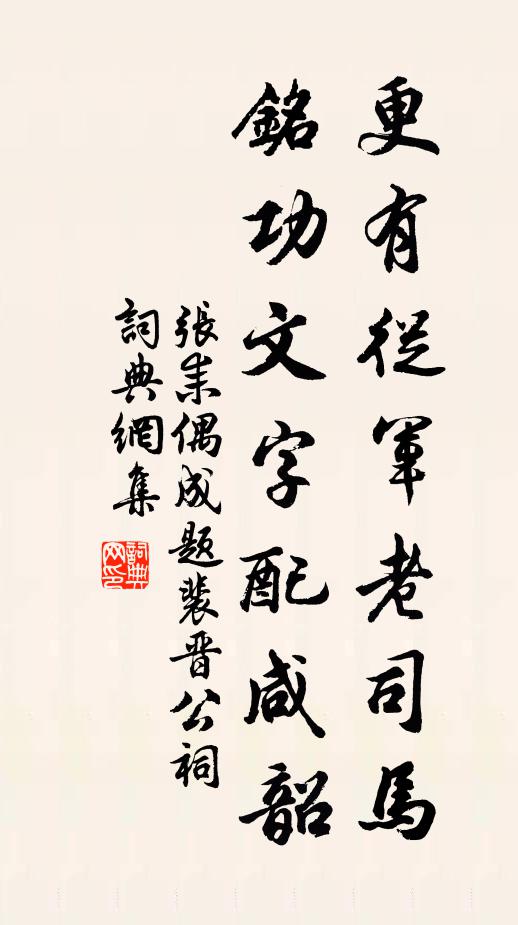 更有從軍老司馬
銘功文字配咸韶
張耒偶成題裴晉公祠
詞典網集
詞典網印